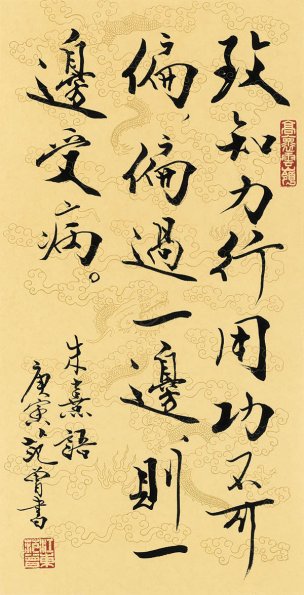 致知力行用功不可
偏，偏過一邊，則一
邊受病。
朱熹語
庚寅范曾書